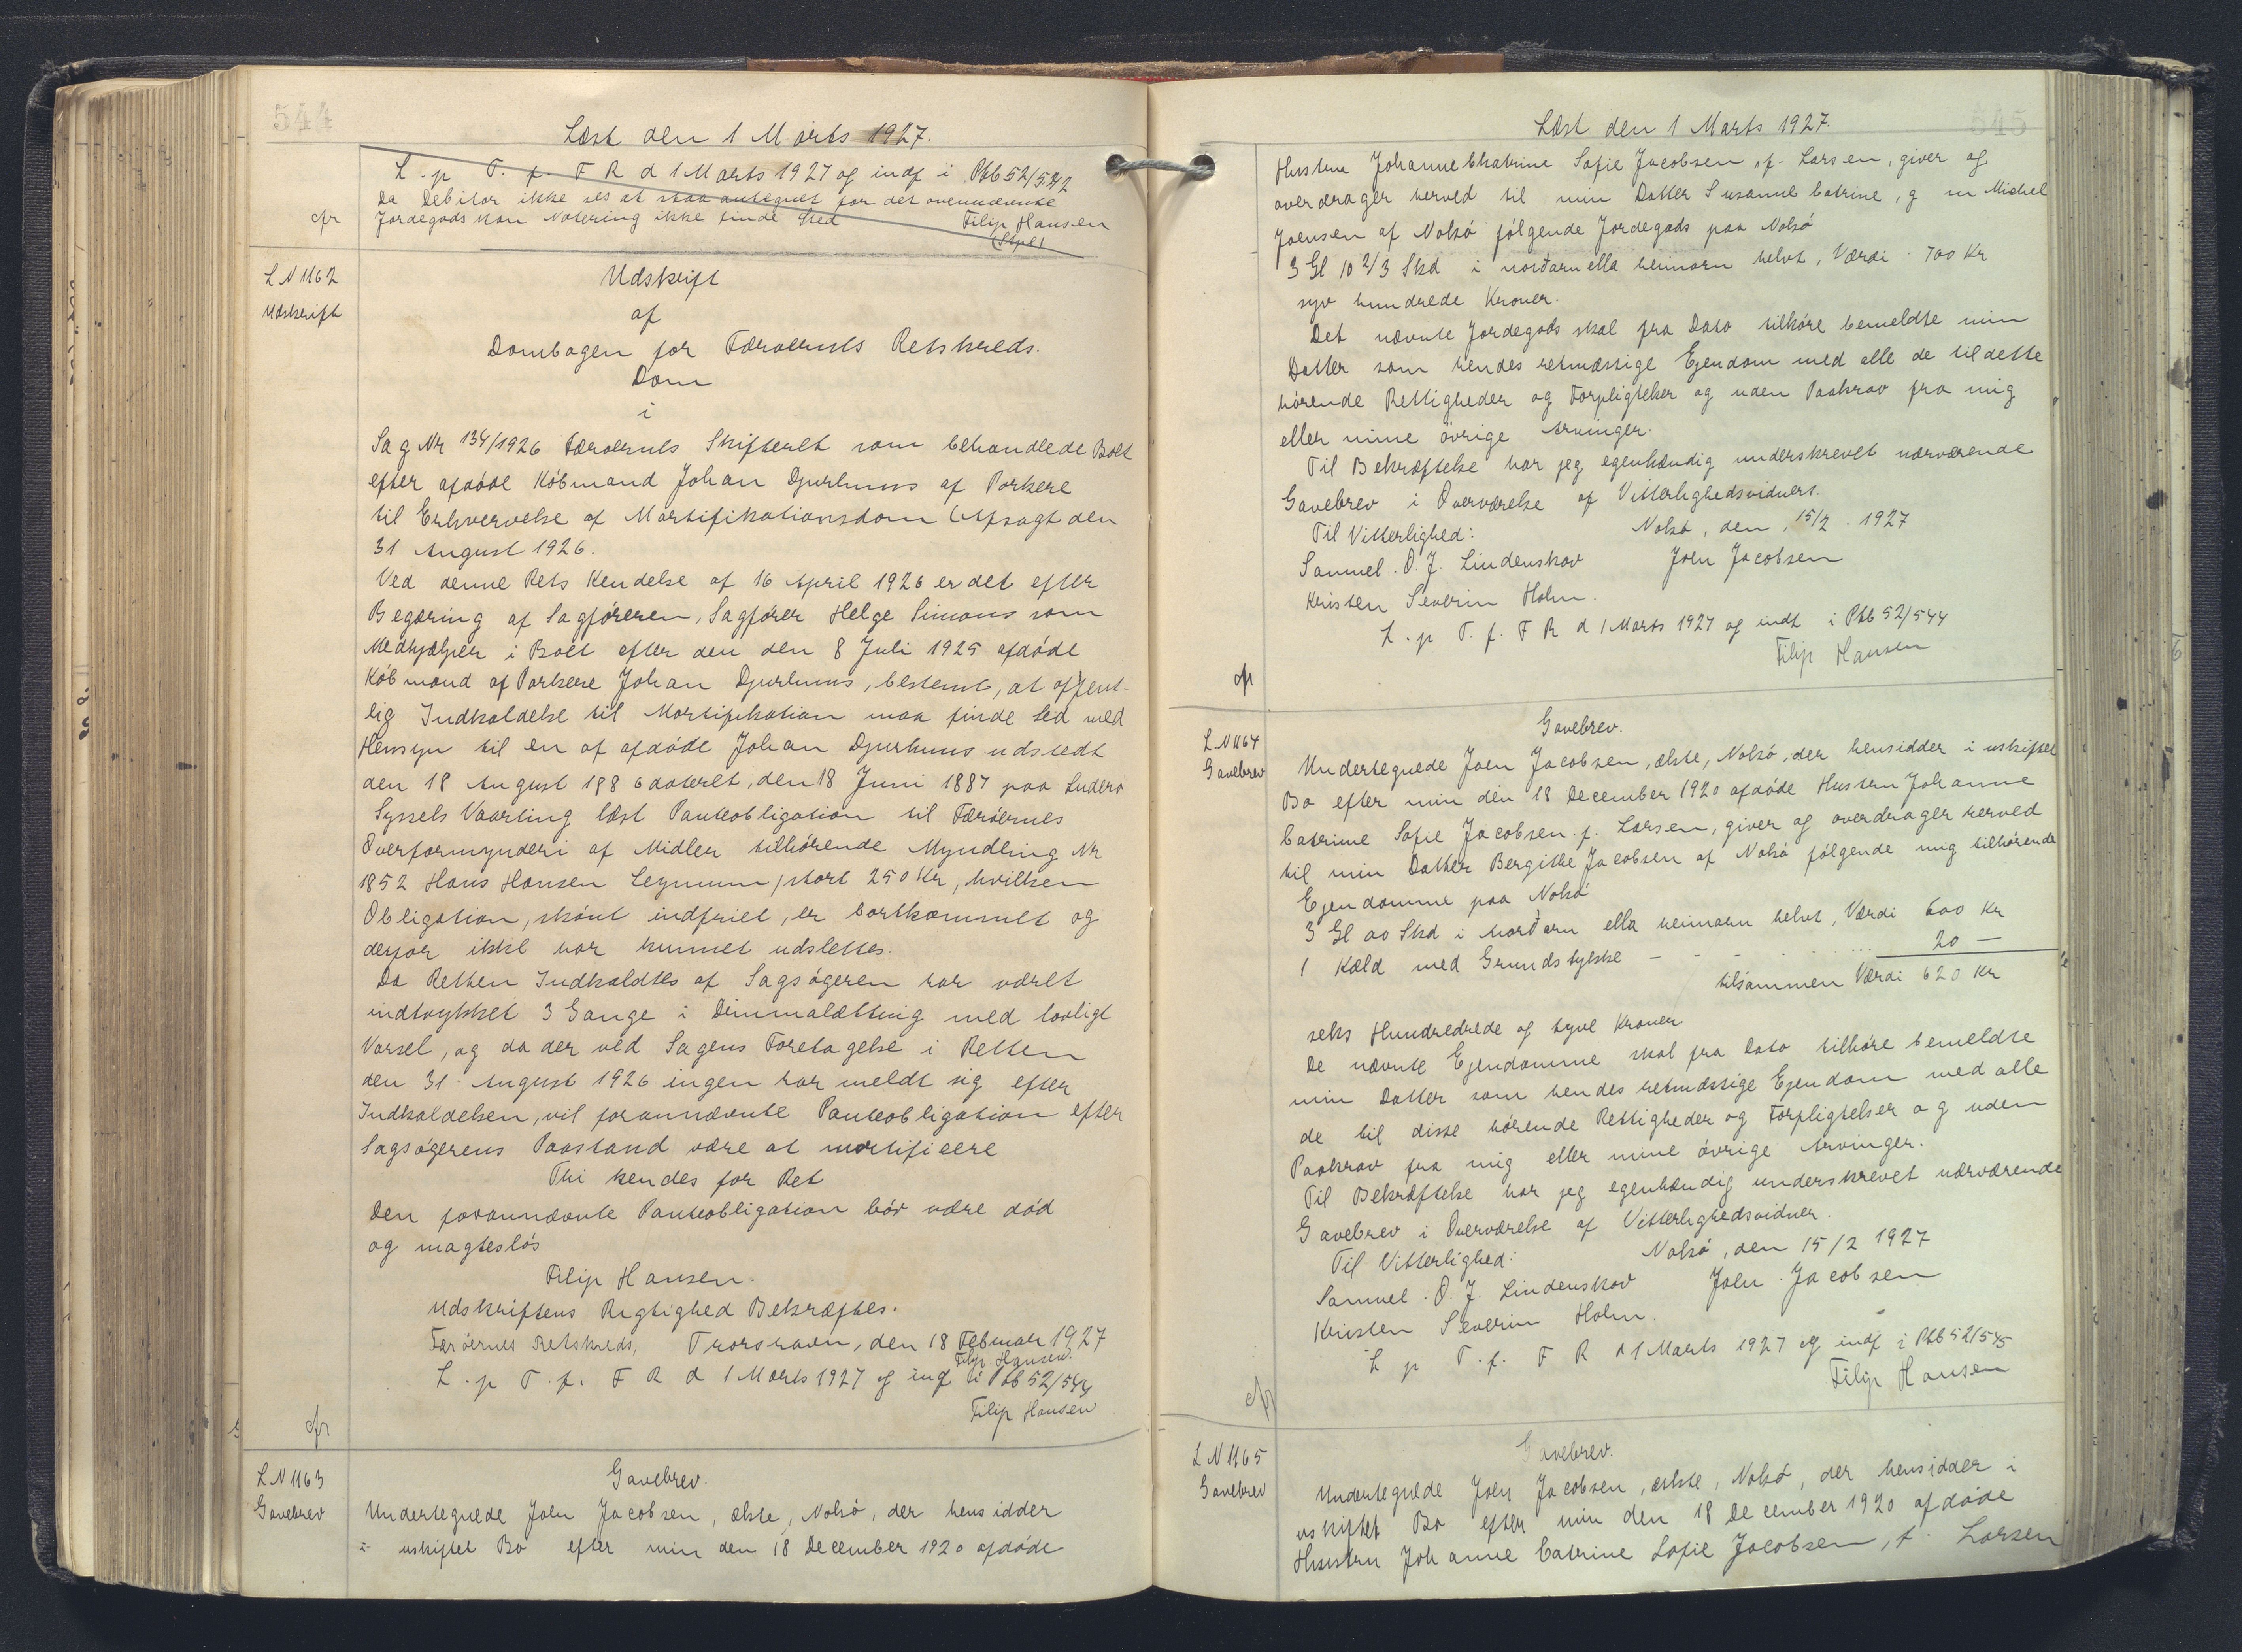 544
Læst den 1 Marts 1927.
L. p T. f. F R d 1 Marts 1927 og indf i Pbb 52/542
Da Debitor ikke ses at staa antegnet for det ovennævnte
Jordegods kan Notering ikke finde Sted
Filip Hansen
cfr
LN 1162
Udskrift
Udskrift
af
Dombogen for Færøernes Retskreds.
Dom
i
Sag Nr 134/1926 Færøernes Skifteret som behandlede Boet
efter afdöde Köbmand Johan Djurhuus af Porkere
til Erhvervelse af Mortifikationsdom (Afsagt den
31 August 1926.
Ved denne Rets Kendelse af 16 April 1926 er det efter
Begæring af Sagföreren, Sagförer Helge Simons som
Medhjælper i Boet efter den den 8 Juli 1925 afdöde
Köbmand af Porkere Johan Djurhuus, bestemt, at offent-
lig Indkaldelse til Mortifikation maa finde Sted med
Hensyn til en af afdöde Johan Djurhuus udstedt
den 18 August 1886 dateret, den 18 Juni 1887 paa Suderø
Syssels Vaarting læst Panteobligation til Færöernes
Overformynderi af Midler tilhörende Myndling Nr
1852 Hans Hansen Leynum, stort 250 Kr, hvilken
Obligation, skönt indfriet, er bortkommet og
derfor ikke har kunnet udslettes.
Da Retten Indkaldtes af Sagsögeren har været
indrykket 3 Gange i Dimmalætting med lovligt
Varsel, og da der ved Sagens Foretagelse i Retten
den 31 August 1926 ingen har meldt sig efter
Indkaldelsen, vil forannævnte Panteobligation efter
Sagsögerens Paastand være at mortificere
Thi kendes for Ret
Den forannævnte Panteobligation bör være död
og magteslös
Filip Hansen.
Udskriftens Rigtighed Bekræftes.
Færöernes Retskreds, Thorshavn, den 18 Februar 1927
Filip Hansen.
L. p T. f. F R d 1 Marts 1927 og indf i Pbb 52/544
Filip Hansen
cfr
LN 1163
Gavebrev
Gavebrev.
Undertegnede Joen Jacobsen, ælste, Nolsö, der hensidder
i uskiftet Bo efter min den 18 December 1920 afdöde
545
Læst den 1 Marts 1927.
Hustru Johanne Chatrine Sofie Jacobsen, f. Larsen, giver og
overdrager herved til min Datter Susanne Catrine, g m Michel
Joensen af Nolsö fölgende Jordegods paa Nolsö
3 Gl 10 2/3 Skd i norðaru ella heimaru helvt, Værdi 700 Kr
syv hundrede Kroner.
Det nævnte Jordegods skal fra Dato tilhöre bemeldte min
Datter som hendes retmæssige Ejendom med alle de til dette
hörende Rettigheder og Forpligtelser og uden Paakrav fra mig
eller mine övrige Arvinger.
Til Bekræftelse har jeg egenhændig underskrevet nærværende
Gavebrev i Overværelse af Vitterlighedsvidner.
Til Vitterlighed: Nolsö, den 15/2 1927
Samuel. O. J. Lindenskov Joen Jacobsen
Kristen Severin Holm.
L. p T. f. F R d 1 Marts 1927 og indf i Pbb 52/544
Filip Hansen
cfr
LN 1164
Gavebrev
Gavebrev.
Undertegnede Joen Jacobsen, ælste, Nolsö, der hensidder i uskiftet
Bo efter min den 18 December 1920 afdöde Hustru Johanne
Catrine Sofie Jacobsen f. Larsen, giver og overdrager herved
til min Datter Bergithe Jacobsen af Nolsö fölgende mig tilhörende
Ejendomme paa Nolsö
3 Gl 00 Skd i norðaru ella heimaru helvt, Værdi 600 Kr
1 Kæld med Grundstykke - - - 20 -
tilsammen Værdi 620 Kr
seks Hundredrede og tyve Kroner
De nævnte Ejendomme skal fra Dato tilhöre bemeldte
min Datter som hendes retmæssige Ejendom med alle
de til disse hörende Rettigheder og Forpligtelser og uden
Paakrav fra mig eller mine övrige Arvinger.
Til Bekræftelse har jeg egenhændig underskrevet nærværende
Gavebrev i Overværelse af Vitterlighedsvidner.
Til Vitterlighed: Nolsö, den 15/2 1927
Samuel. O. J. Lindenskov Joen Jacobsen
Kristen Severin Holm.
L p T. f. F R d 1 Marts 1927 og indf i Pbb 52/545
Filip Hansen
cfr
LN 1165
Gavebrev
Gavebrev.
Undertegnede Joen Jacobsen, ælste, Nolsö, der hensidder i
uskiftet Bo efter min den 18 December 1920 afdöde
Hustru Johanne Catrine Sofie Jacobsen, f. Larsen